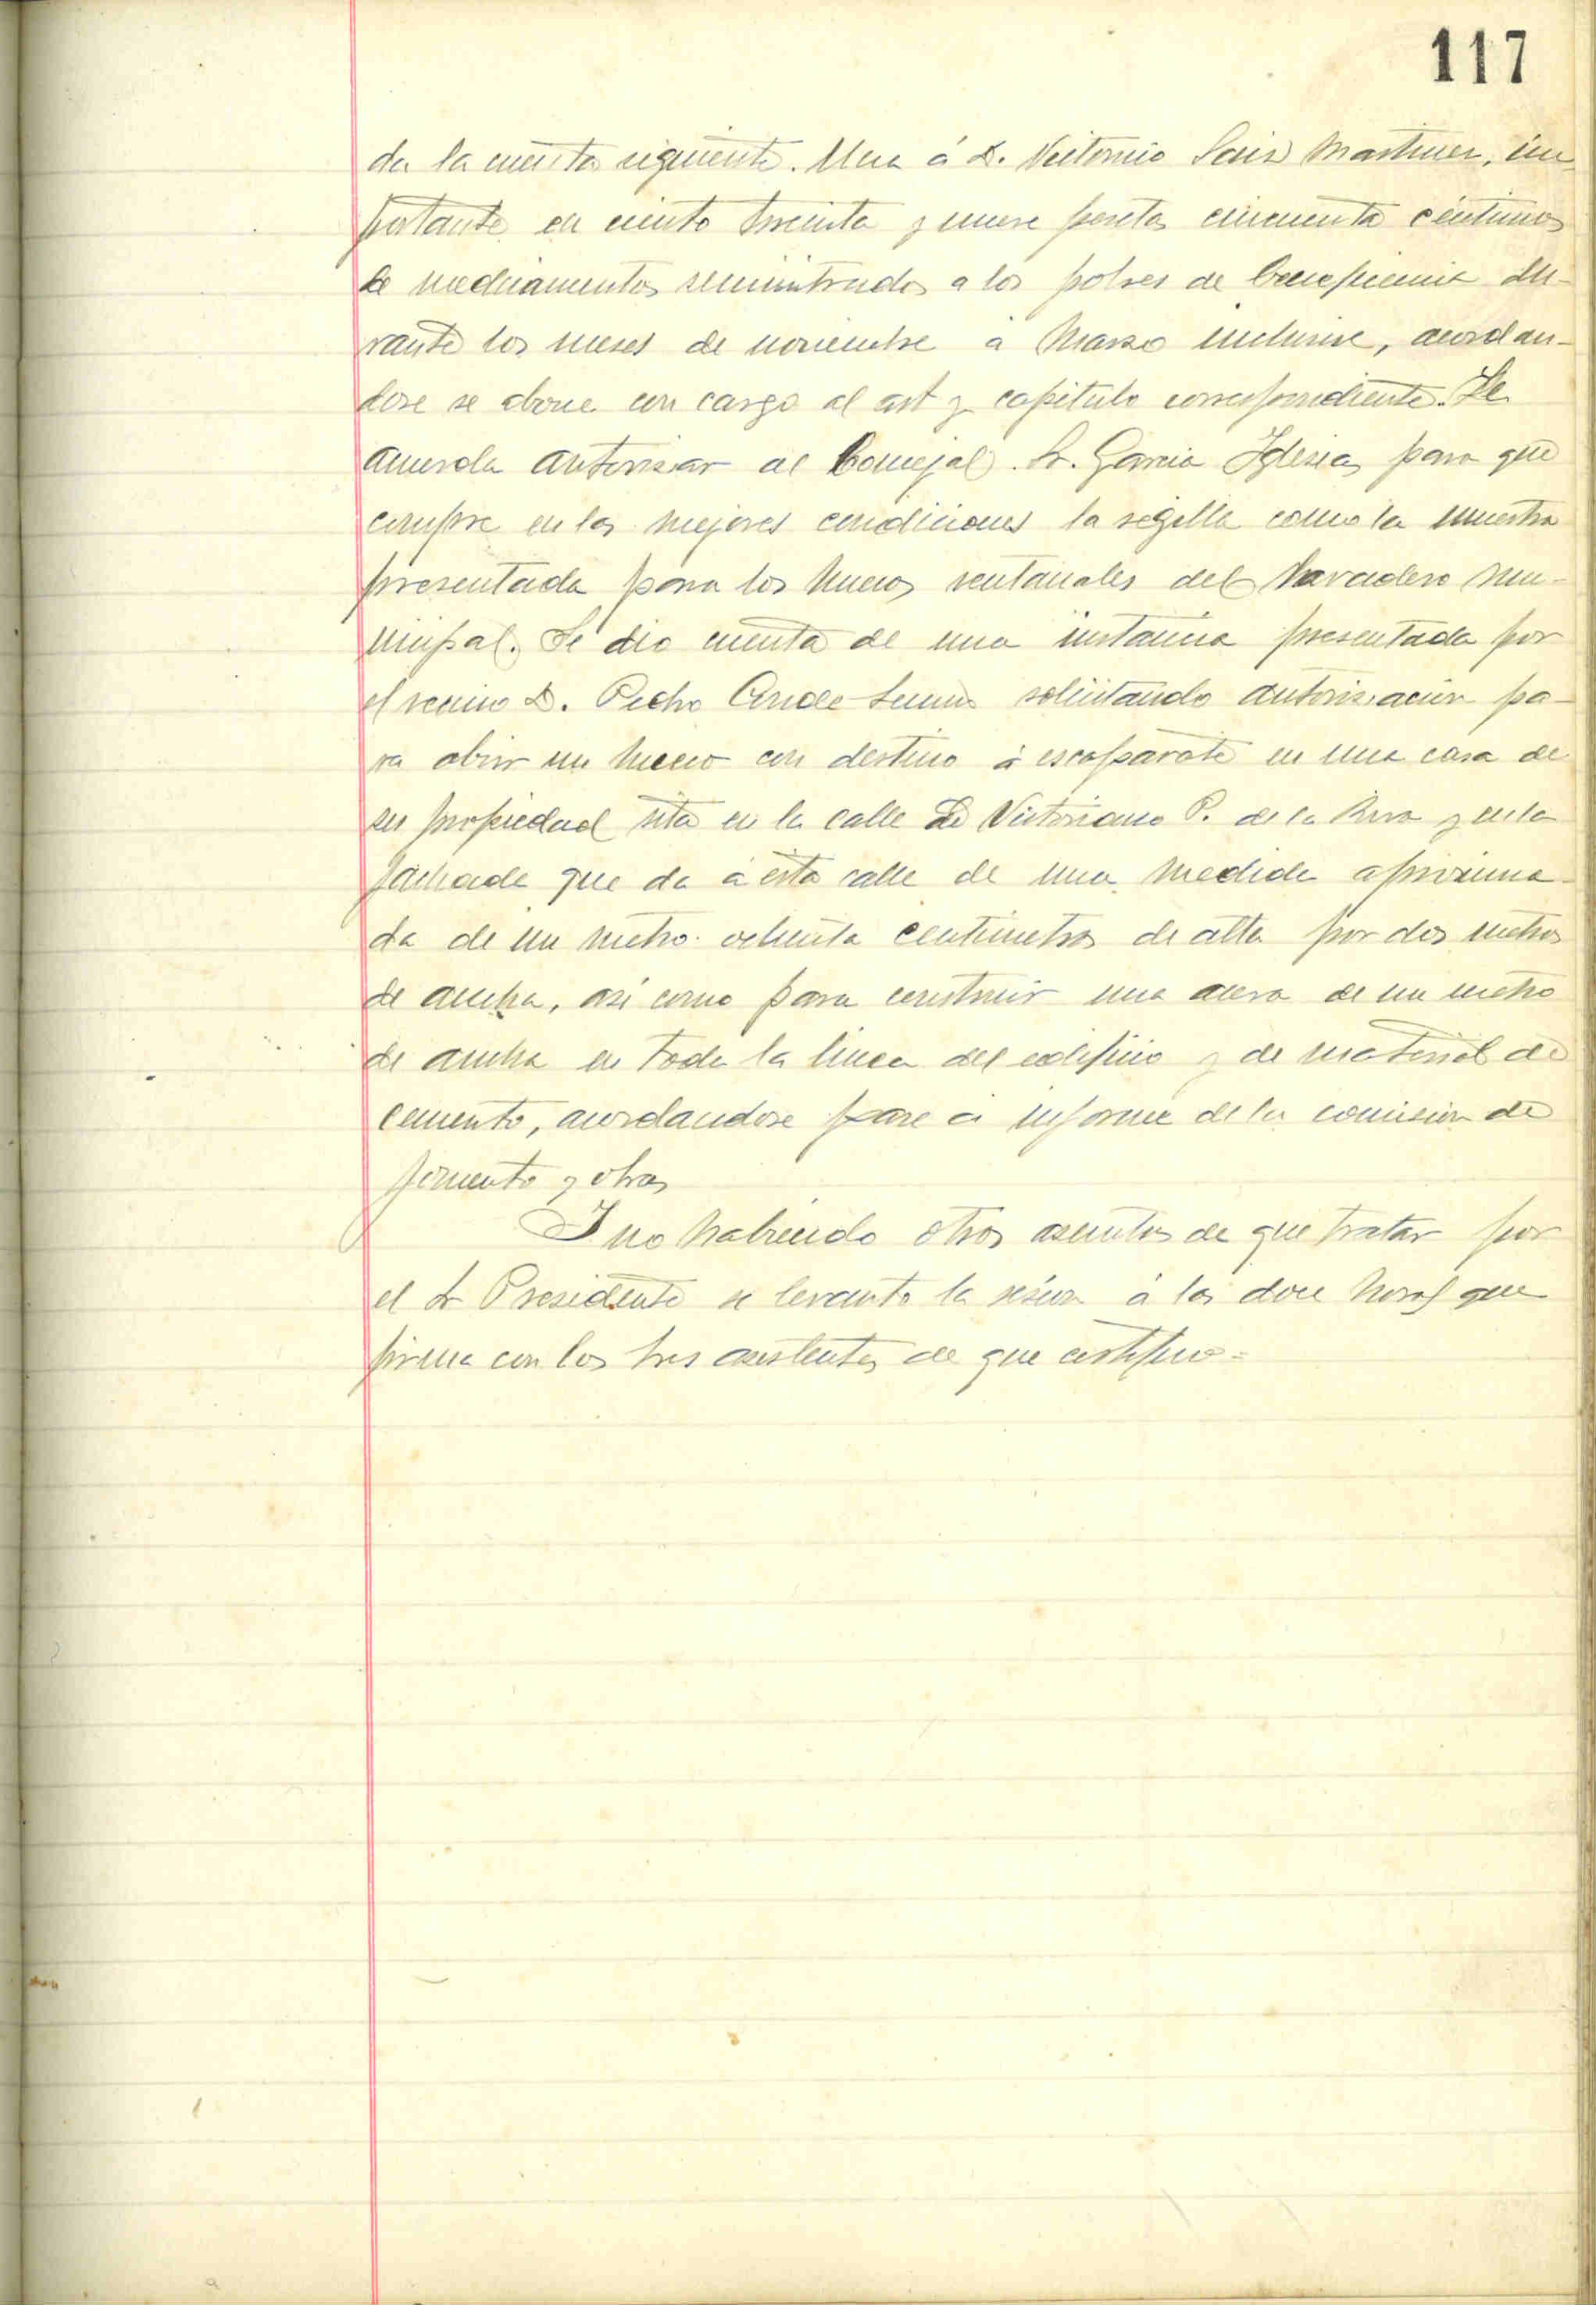 117
da la cuenta siguiente. Una á D. Victorino Sais Martinez, im-
portante en ciento treinta y nueve pesetas cincuenta centimos
de medicamentos suministrados a los pobres de beneficencia du-
rante los meses de noviembre a Marzo inclusive, acordan-
dose se abone con cargo al art y capitulo correspondiente. Se
acuerda autorizar al Concejal Sr. Garcia Iglesias para que
compre en las mejores condiciones la regilla como la muestra
presentada para los huecos ventanales del Lavadero Mu-
nicipal. Se dio cuenta de una instancia presentada por
el vecino D. Pedro solicitando autorizacion pa-
ra abrir un hueco con destino á escaparate en una casa de
su propiedad sita en la calle de Victoriano P. de la Riva y en la
fachada que da a esta calle de una medida aproxima-
da de un metro ochenta centimetros de alta por dos metros
de ancha, asi como para construir una acera de un metro
de ancha en toda la linea del edificio y de material de
cemento, acordandose pase a informe de la comision de
fomento y obras
Y no habiendo otros asuntos de que tratar por
el Sr Presidente se levanto la sesion a las doce horas que
firma con los tres asistentes de que certifico=